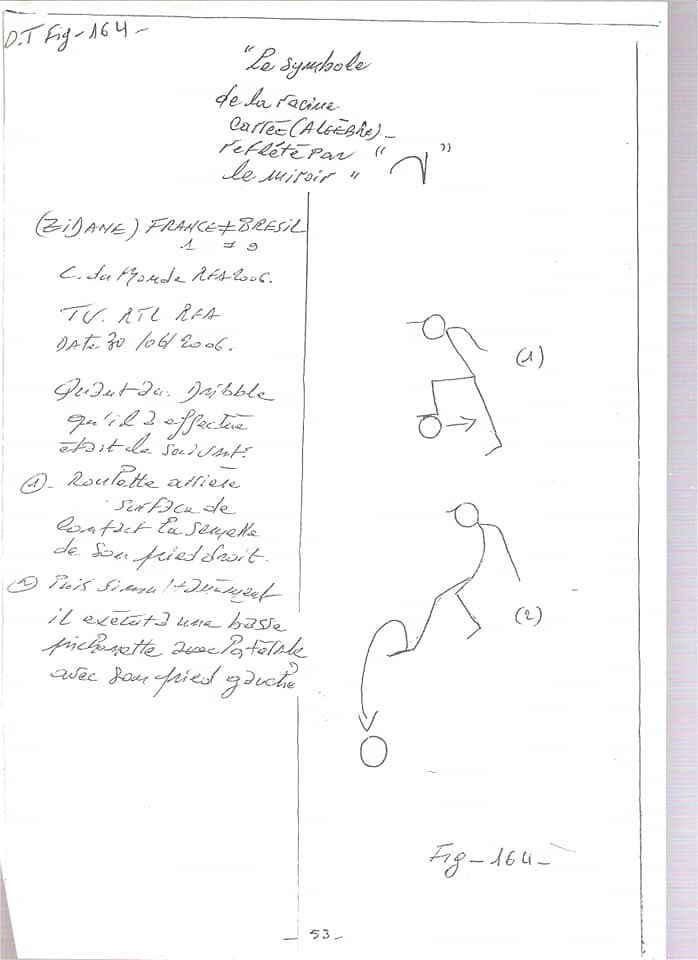 D.T Fig-164-
"Le symbole
de la racine
Carrée (ALGÈBRE)-
reflété par "  "
le miroir"
(ZIDANE) FRANCE≠BRESIL
1 = 0
C. du Monde RFA 2006.
TV. RTL RFA
DATE 30/06/2006.
Quant au. Dribble
qu'il a effectué
était le suivant:
1)- Roulette arrière
surface de
Contact la semelle
de son pied droit.
2) Puis simultanément
il exécuta une basse
pichenette avec
avec son pied gauche
(1)
(2)
Fig-164-
- 53 -